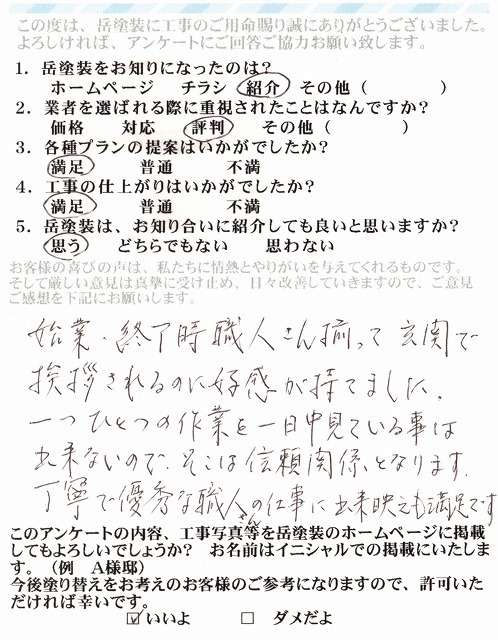 この度は、岳塗装に工事のご用命賜り誠にありがとうございました。
よろしければ、アンケートにご回答ご協力お願い致します。
1．岳塗装をお知りになったのは？
ホームページ　チラシ　紹介　その他（　　　　）
2．業者を選ばれる際に重視されたことはなんですか？
価格　対応　評判　その他（　　　　）
3．各種プランの提案はいかがでしたか？
満足　普通　不満
4．工事の仕上がりはいかがでしたか？
満足　普通　不満
5．岳塗装は、お知り合いに紹介しても良いと思いますか？
思う　どちらでもない　思わない
お客様の喜びの声は、私たちに情熱とやりがいを与えてくれるものです。
そして厳しい意見は真摯に受け止め、日々改善していきますので、ご意見
ご感想を下記にお願いします。
始業・終了時職人さん揃って玄関で
挨拶されるのに好感が持てました。
一つひとつの作業を一日中見ている事は
出来ないので、そこは信頼関係となります。
丁寧で優秀な職人さんの仕事に出来映えも満足です
このアンケートの内容、工事写真等を岳塗装のホームページに掲載
してもよろしいでしょうか？　お名前はイニシャルでの掲載にいたしま
す。（例　A様邸）
今後塗り替えをお考えのお客様のご参考になりますので、許可いた
だければ幸いです。
☑いいよ　□　ダメだよ